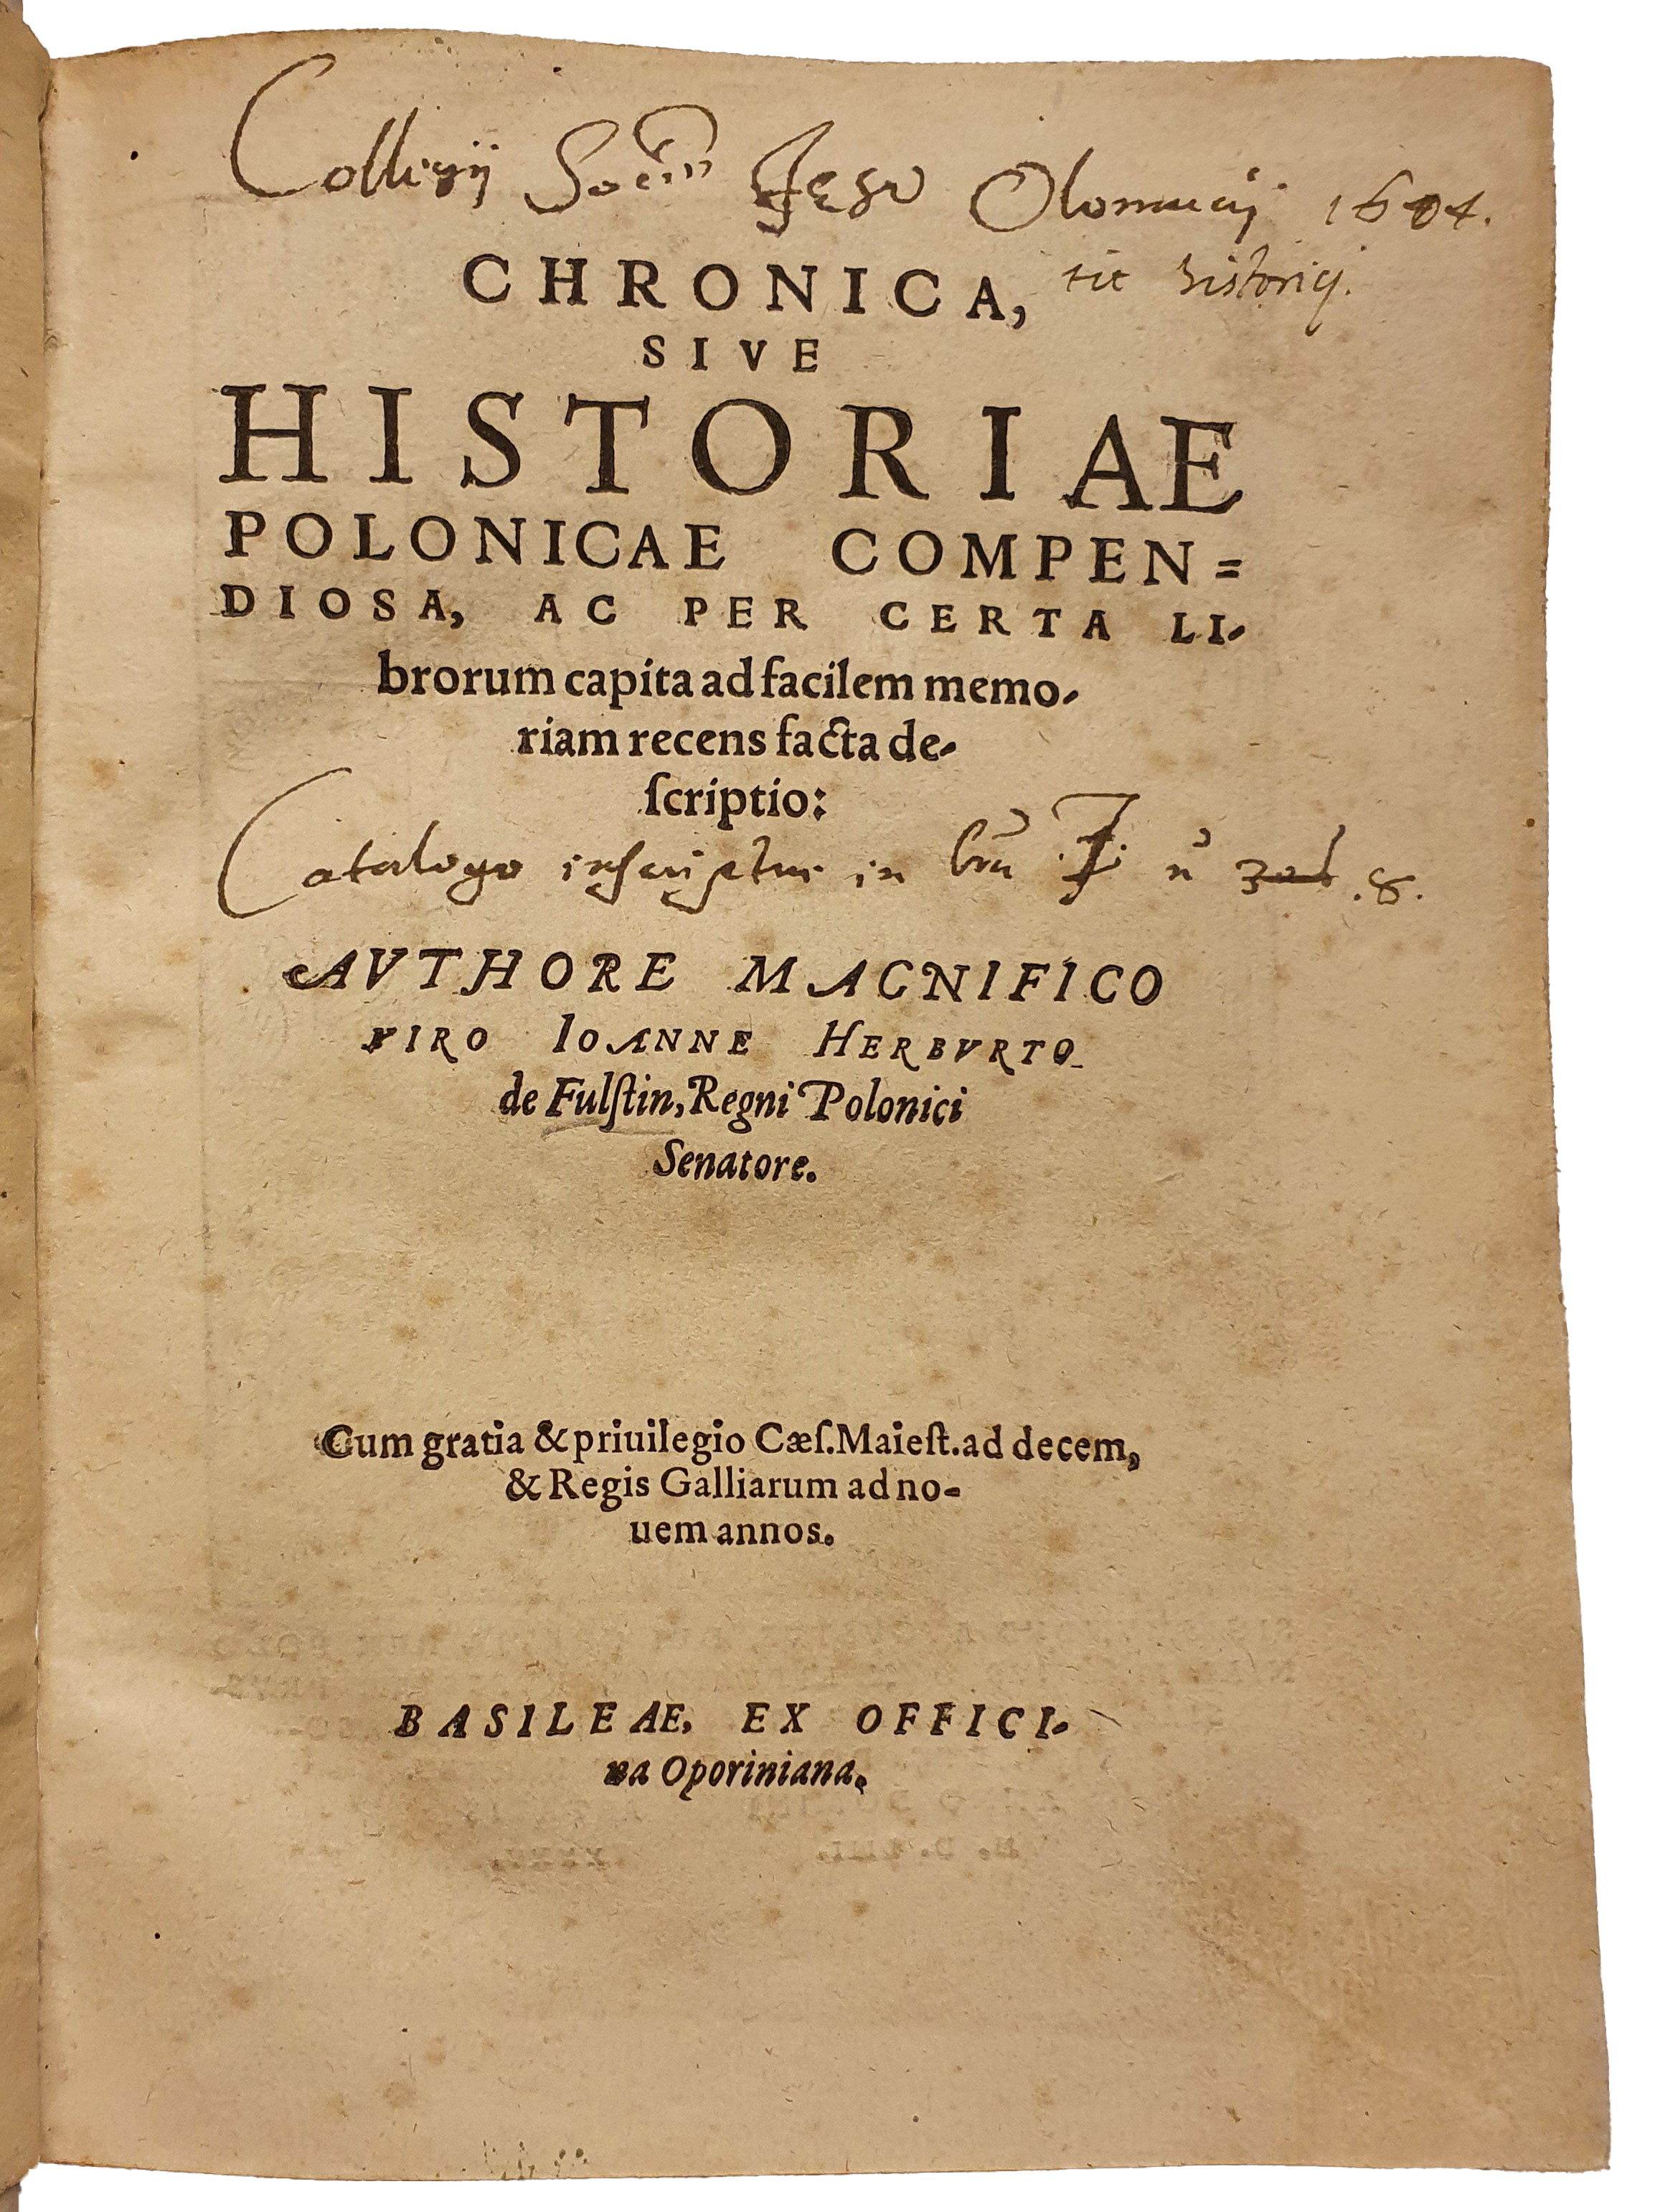 Collegij Societis Jesu Olomucij 1604.
CHRONICA, tit historicj.
SIVE
HISTORIAE
POLONICAE COMPEN=
DIOSA, AC PER CERTA LI-
brorum capita ad facilem memo-
riam recens facta de-
ſcriptio:
Catalogo inscriptus in 8.
AVTHORE MAGNIFICO
VIRO IOANNE HERBVRTO
de Fulſtin, Regni Polonici
Senatore.
Cum gratia & priuilegio Cæſ. Maieſt. ad decem,
& Regis Galliarum ad no-
uem annos.
BASILEAE, EX OFFICI-
na Oporiniana.